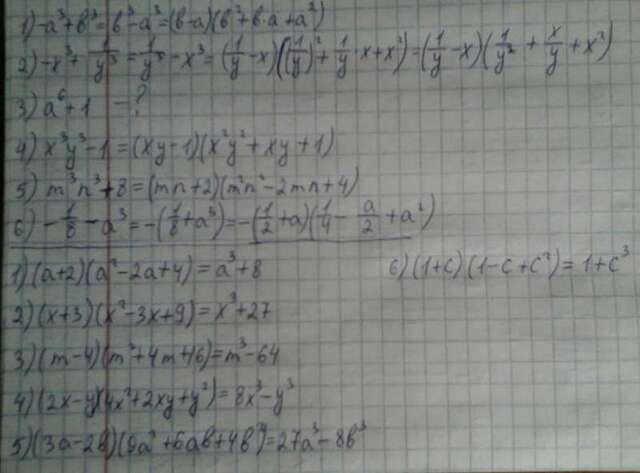 1) -a³+b³=b³-a³=(b-a)(b²+b·a+a²)
2) -x³+1/y³=1/y³-x³=(1/y-x)((1/y)²+1/y·x+x²)=(1/y-x)(1/y²+x/y+x²)
3) a⁶+1 -?
4) x³y³-1=(xy-1)(x²y²+xy+1)
5) m³n³+8=(mn+2)(m²n²-2mn+4)
6) -1/8-a³=-(1/8+a³)=-(1/2+a)(1/4-a/2+a²)
1) (a+2)(a²-2a+4)=a³+8
6) (1+c)(1-c+c²)=1+c³
2) (x+3)(x²-3x+9)=x³+27
3) (m-4)(m²+4m+16)=m³-64
4) (2x-y)(4x²+2xy+y²)=8x³-y³
5) (3a-2b)(9a²+6ab+4b²)=27a³-8b³